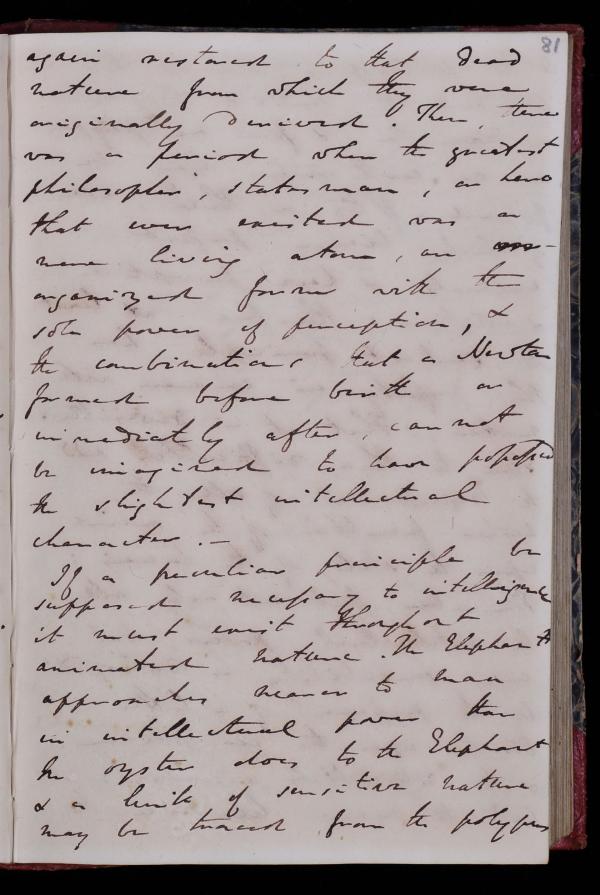 81
again restored to that dead
nature from which they were
originally derived. Then, there
was a period when the greatest
philosopher, statesman, or hero
that ever existed was a
mere living atom, an
organized form with the
sole power of perception, &
the combinations that a Newton
formed before birth or
immediately after, cannot
be imagined to have possessed
the slightest intellectual
character. —
If a peculiar principle be
supposed necessary to intelligence
it must exist throughout
animated nature. The Elephant
approaches nearer to man
in intellectual power than
the oyster does to the Elephant
& a link of sensitive nature
may be traced from the polypus